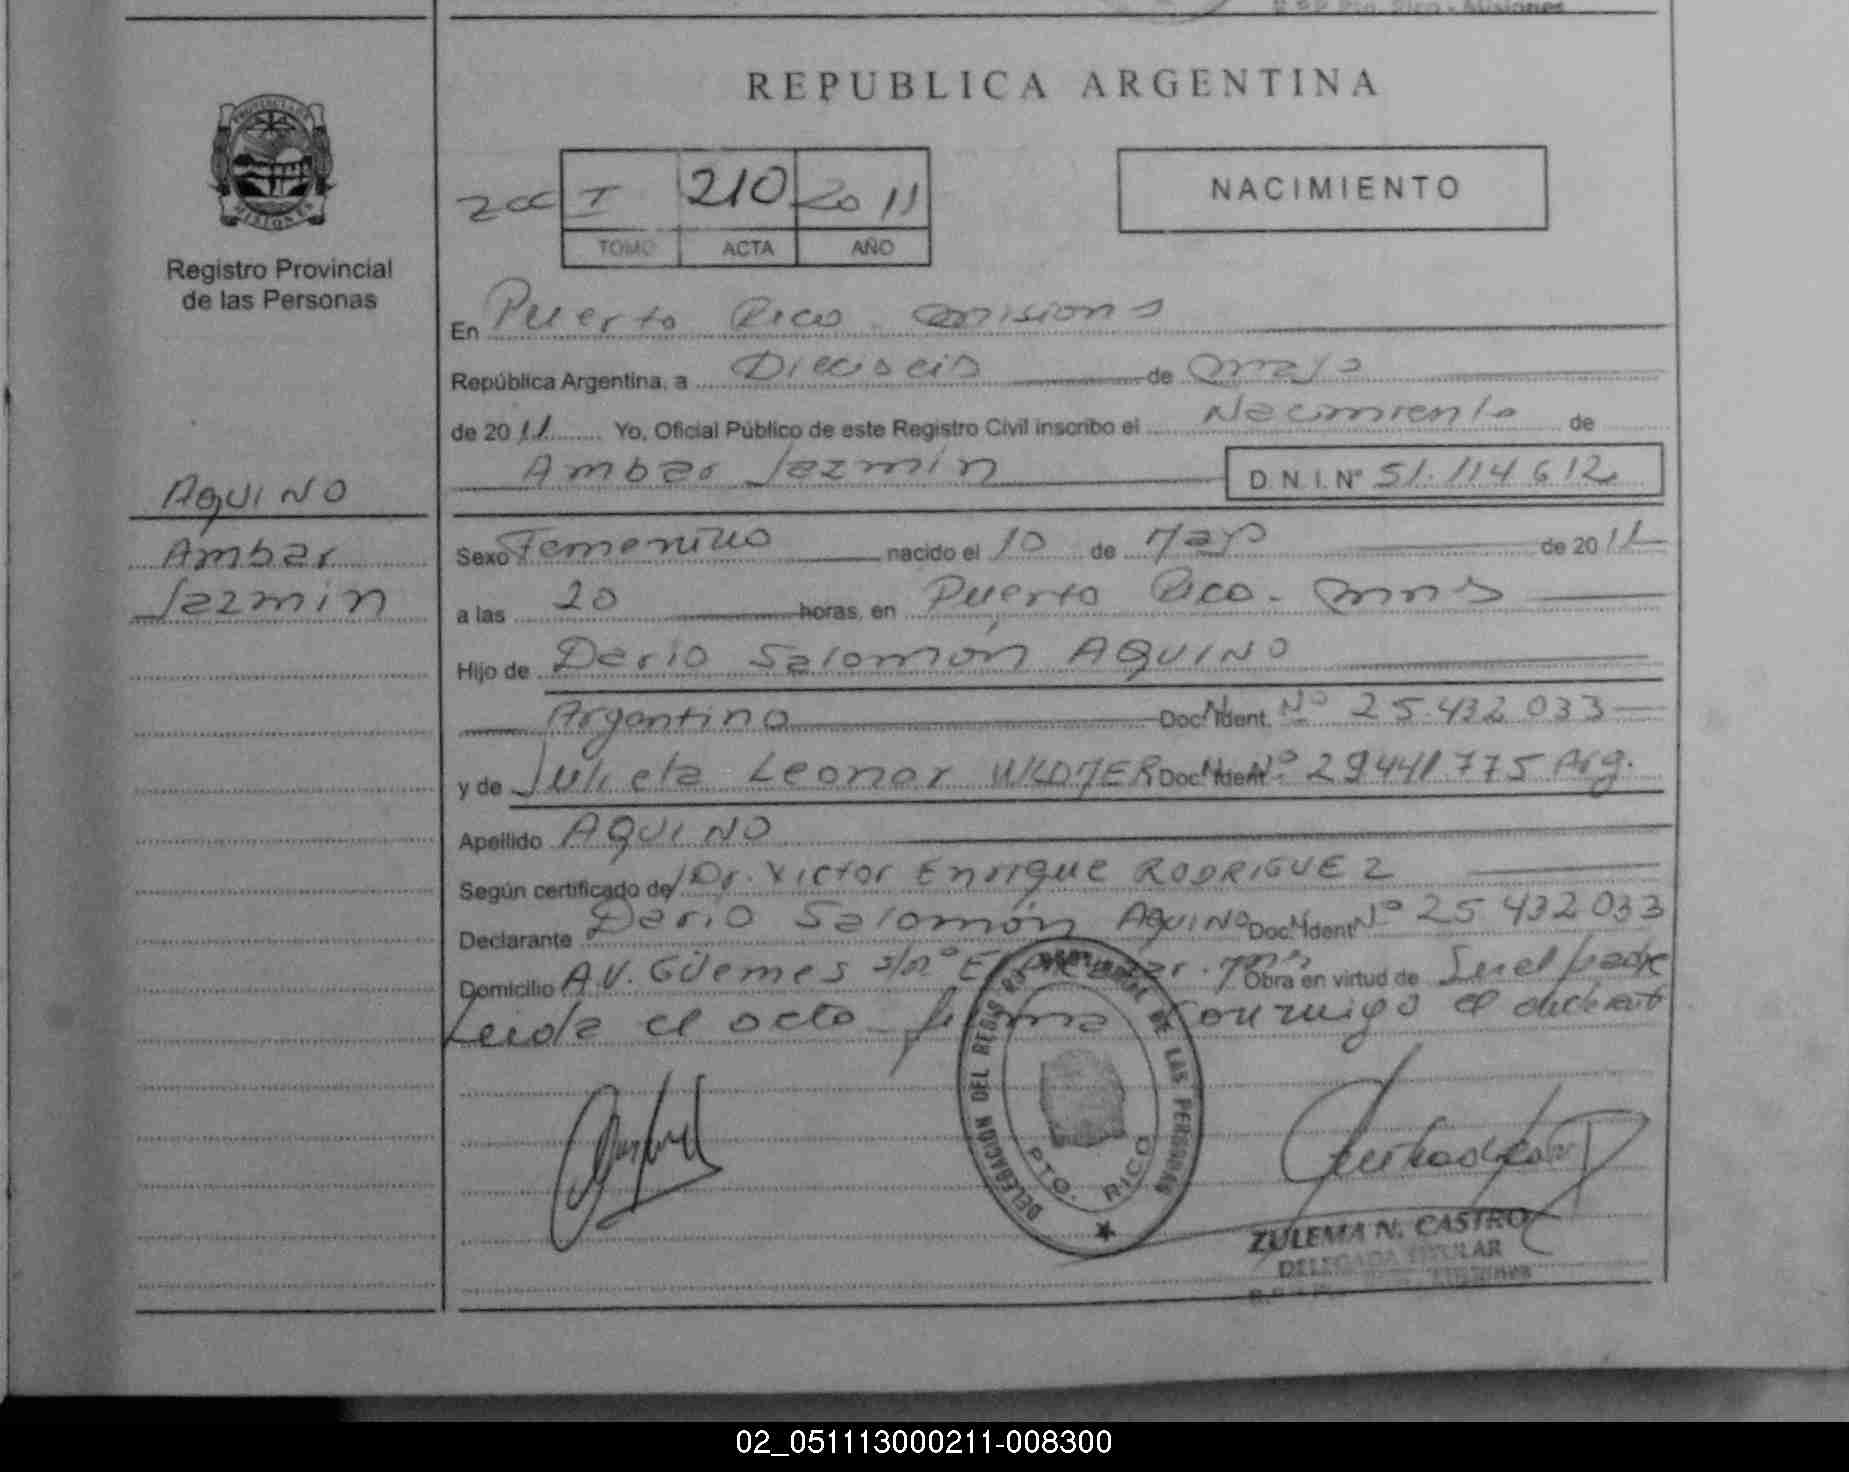 REPUBLICA ARGENTINA
PROVINCIA DE
MISIONES
Registro Provincial
de las Personas
I 210 2011
TOMO ACTA AÑO
NACIMIENTO
En Puerto Rico Misiones
República Argentina, a Dieciseis de mayo
de 2011 Yo, Oficial Público de este Registro Civil inscribo el Nacimiento de
Ambar Jazmin D.N.I.Nº 51.114.612
AQUINO
Ambar
Jazmin
Sexo Femenino nacido el 10 de Mayo de 2011
a las 20 horas, en Puerto Rico - Mnes
Hijo de Dario Salomón AQUINO
Argentino Doc. Ident. Nº 25.432.033
y de Julieta Leonor Doc. Ident. Nº 29441775 Arg.
Apellido AQUINO
Según certificado de Dr. Victor Enrique RODRIGUEZ
Declarante Dario Salomón AQUINO Doc. Ident Nº 25 432 033
Domicilio AV. Güemes s/nº Obra en virtud de Ser el padre
Leida el acta firma conmigo el declarante
DELEGACIÓN DEL REGISTRO PROVINCIAL DE LAS PERSONAS
PTO. RICO
ZULEMA N. CASTRO
DELEGADA TITULAR
02_051113000211-008300